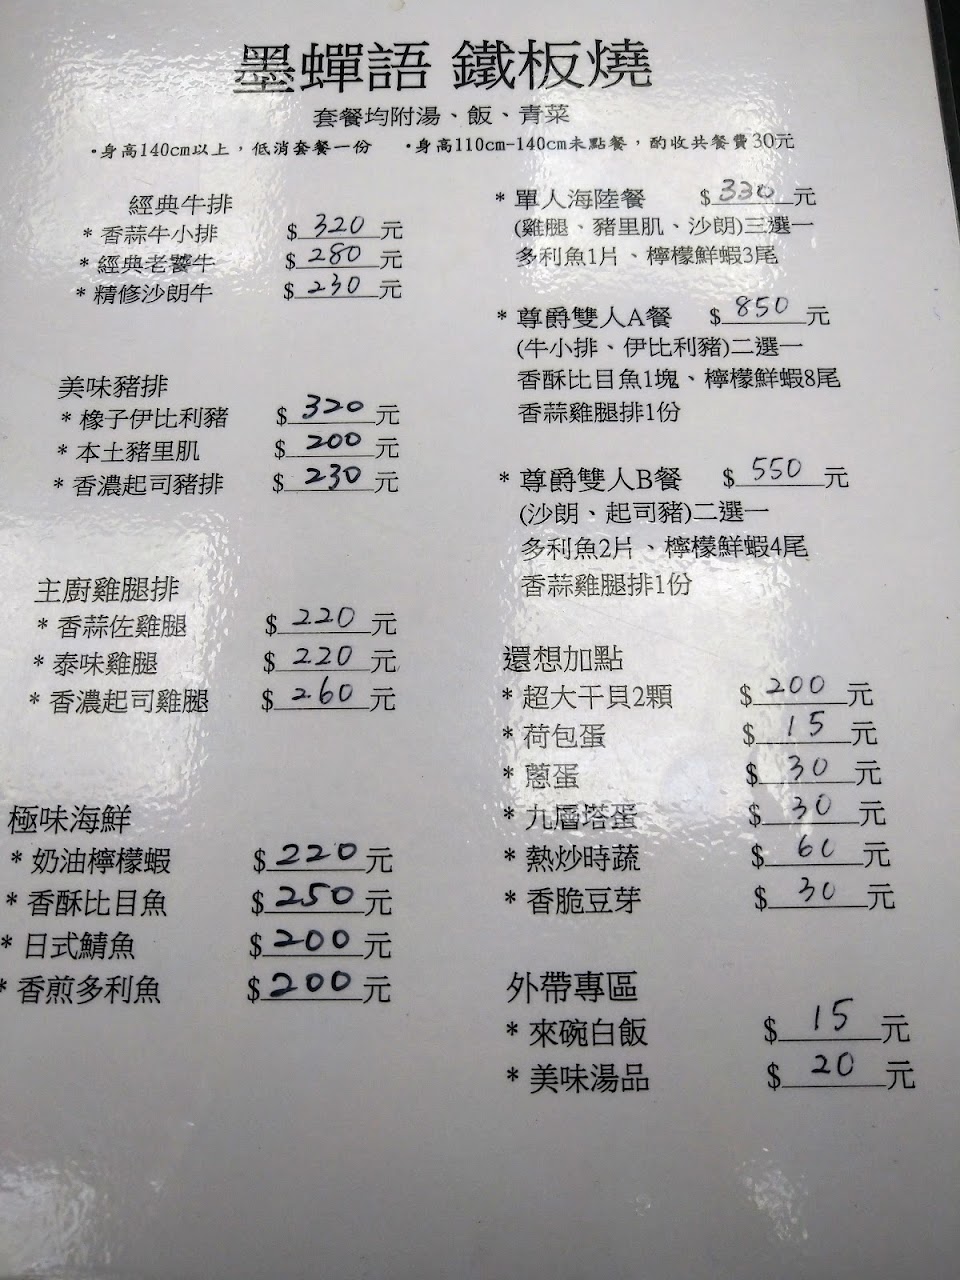 墨蟬語 鐵板燒
套餐均附湯、飯、青菜
•身高140cm以上，低消套餐一份 •身高110cm-140cm未點餐，酌收共餐費30元
經典牛排
* 香蒜牛小排 $320元
* 經典老饕牛 $280元
* 精修沙朗牛 $230元
美味豬排
* 橡子伊比利豬 $320元
* 本土豬里肌 $200元
* 香濃起司豬排 $230元
主廚雞腿排
* 香蒜佐雞腿 $220元
* 泰味雞腿 $220元
* 香濃起司雞腿 $260元
極味海鮮
* 奶油檸檬蝦 $220元
* 香酥比目魚 $250元
* 日式鯖魚 $200元
* 香煎多利魚 $200元
* 單人海陸餐 $330元
(雞腿、豬里肌、沙朗)三選一
多利魚1片、檸檬鮮蝦3尾
* 尊爵雙人A餐 $850元
(牛小排、伊比利豬)二選一
香酥比目魚1塊、檸檬鮮蝦8尾
香蒜雞腿排1份
* 尊爵雙人B餐 $550元
(沙朗、起司豬)二選一
多利魚2片、檸檬鮮蝦4尾
香蒜雞腿排1份
還想加點
* 超大干貝2顆 $200元
* 荷包蛋 $15元
* 蔥蛋 $30元
* 九層塔蛋 $30元
* 熱炒時蔬 $60元
* 香脆豆芽 $30元
外帶專區
* 來碗白飯 $15元
* 美味湯品 $20元